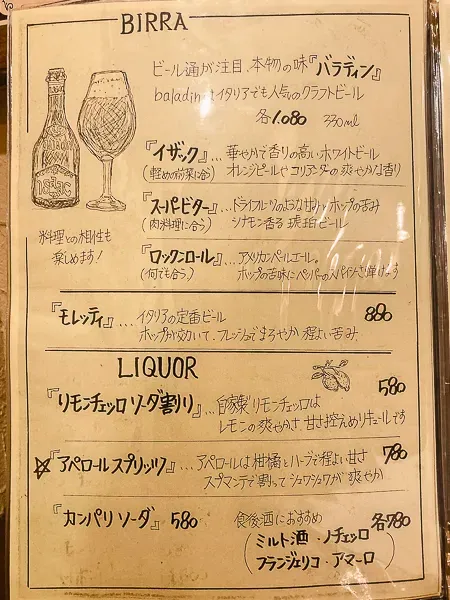 BIRRA
ビール通が注目、本物の味『バラディン』
baladinはイタリアでも人気のクラフトビール
各1.080 330ml
isaac
お料理との相性も
楽しめます!
『イザック』…華やかで香りの高いホワイトビール
(軽めのお菜に合う) オレンジピールやコリアンダーの爽やかな香り
『スーパービター』…ドライフルーツのような甘みとホップの苦み
(肉料理に合う) シナモン香る琥珀ビール
『ロックンロール』…アメリカンペールエール。
(何でも合う) ホップの苦味にペッパーのスパイシーさ
『モレッティ』…イタリアの定番ビール 880
ホップが効いて、フレッシュでまろやか 程よい苦み
LIQUOR
580
『リモンチェッロ ソーダ割り』…自家製リモンチェッロは
レモンの爽やかさ、甘さ控えめリキュールです
☆『アペロールスプリッツ』…アペロールは柑橘とハーブで程よい甘さ 780
スプマンテで割ってシュワシュワが爽やか
『カンパリソーダ』580 食後酒におすすめ 各780
(ミルト酒・ノチェッロ
フランジェリコ・アマーロ)